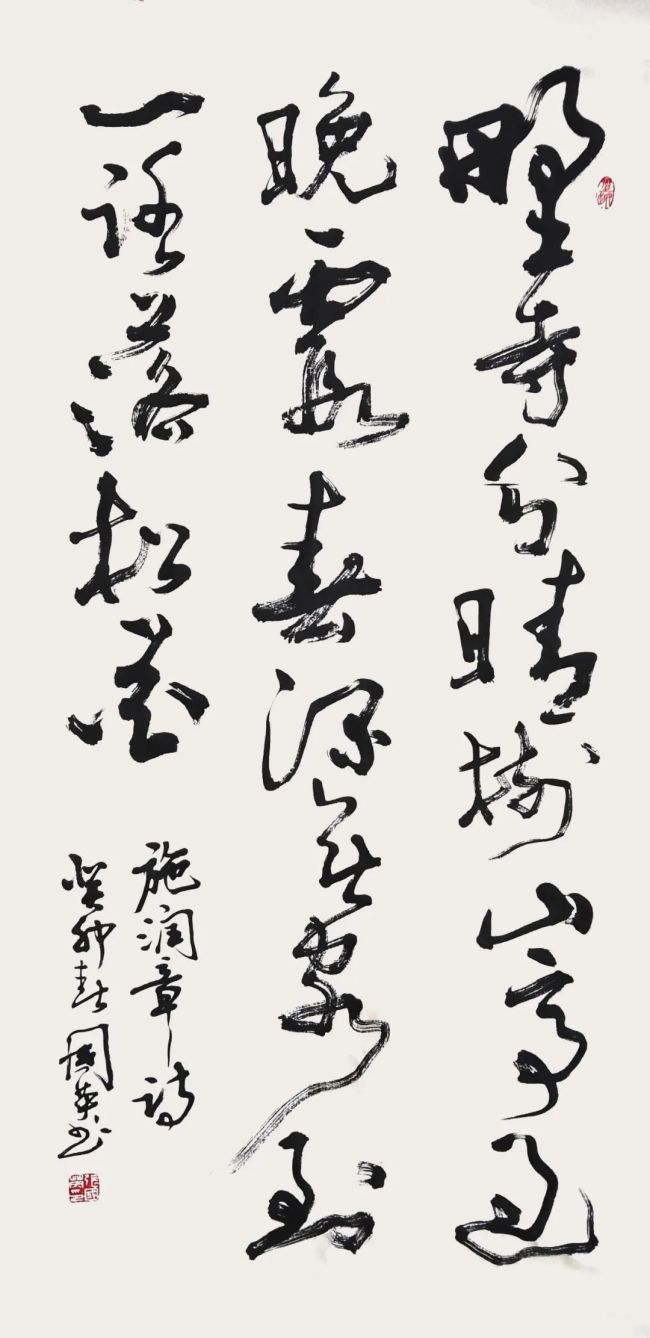 野寺分晴树山亭过
晚霞春深无客到
一路落松花
施润章诗
癸卯春国书